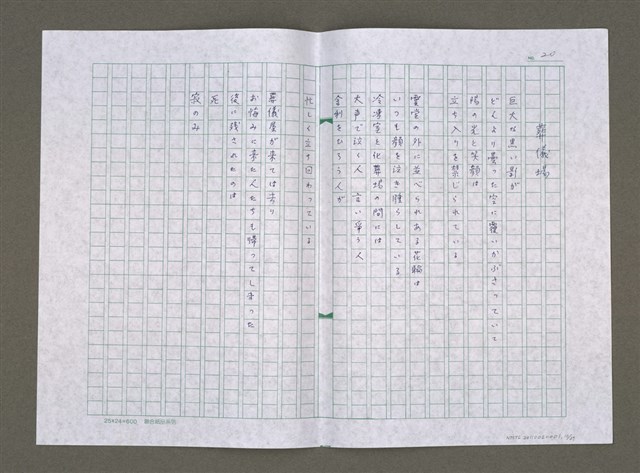 No. 20
葬儀場
巨大な黒い影が
どんより曇った空に覆いかぶさっていて
陽の光と笑顔は
立ち入りを禁じられている
霊堂の外に並べられある花輪は
いつも顔を泣き腫らしている
冷凍室と化粧場の間には
大声で泣く人 言い争う人
舎利をひろう人が
忙しく立ち回わっている
葬儀屋が来ては去り
お悔みに来た人たちも帰ってしまった
後に残されたのは
死
寂のみ
25×24=600